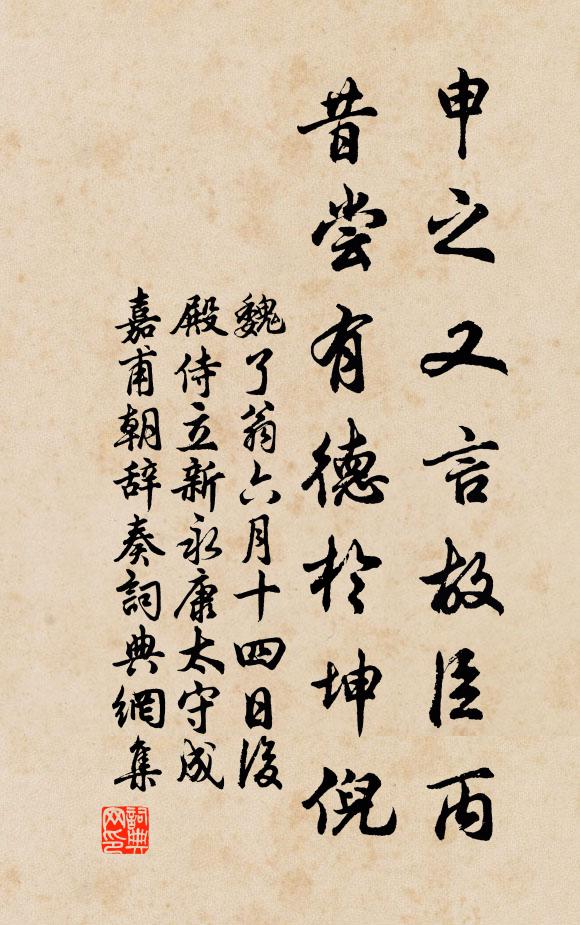 申之又言故臣丙
昔尝有德於坤倪
魏了翁六月十四日後
殿侍立新永康太守成
嘉甫朝辞奏詞典網集
詞典
网印